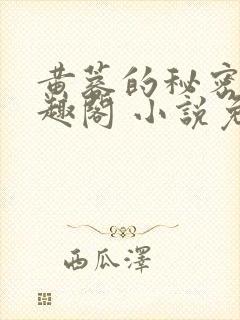 黄蓉的秘密
趣閣 小說免
西瓜澤